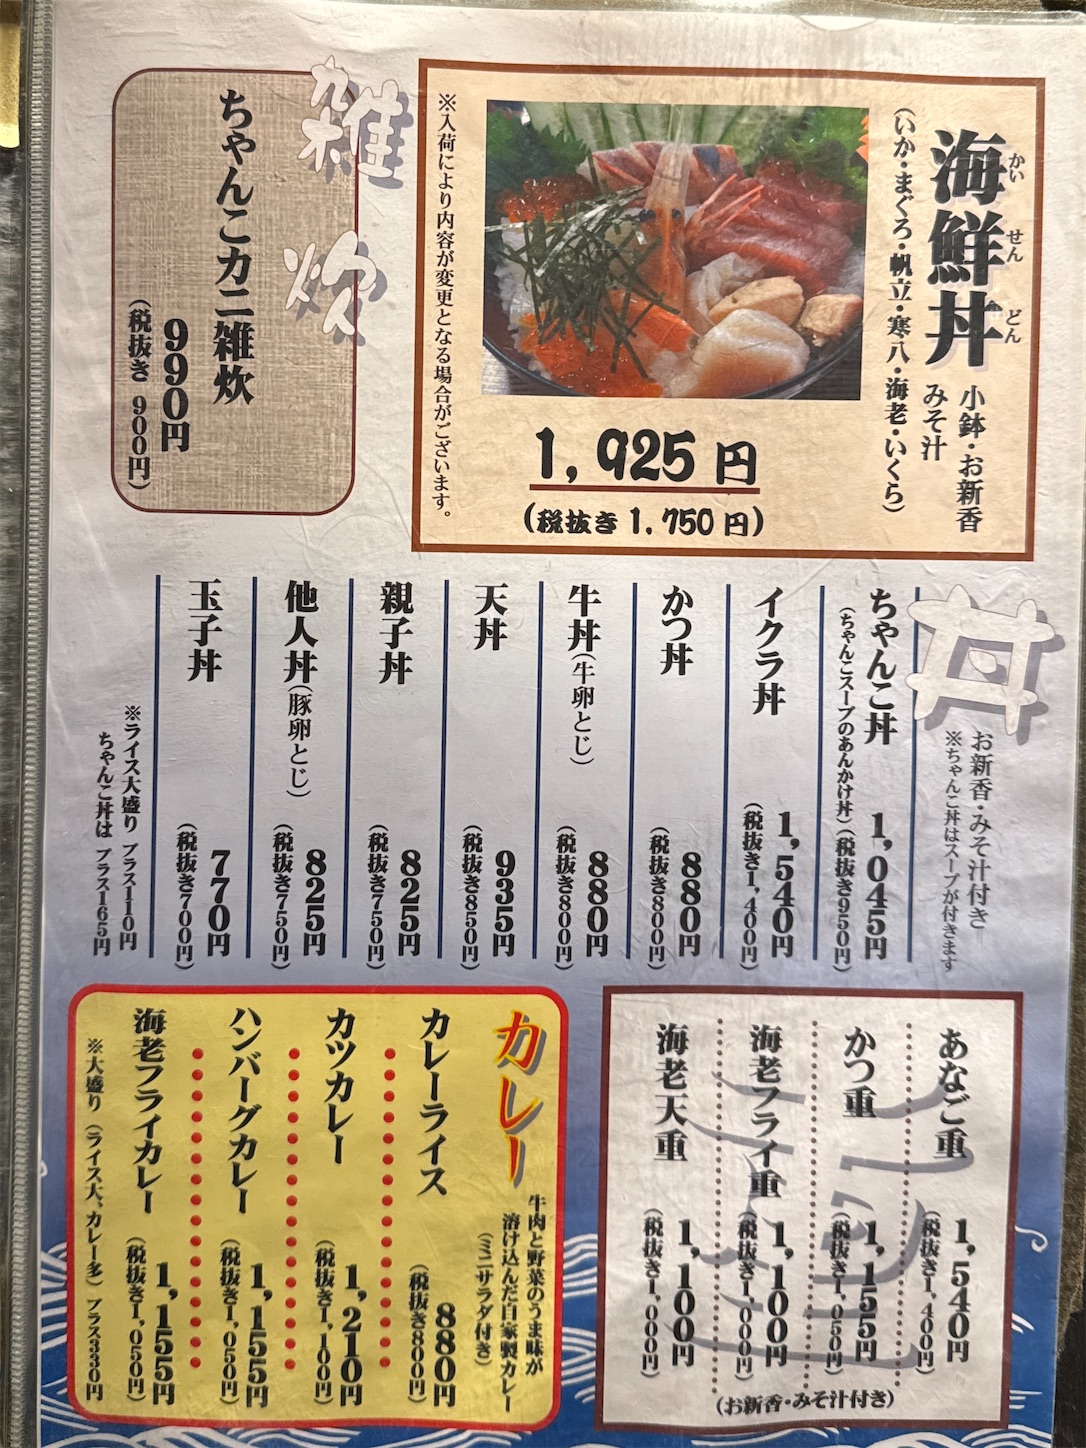 海鮮丼
かい せん どん
小鉢・お新香
みそ汁
(いか・まぐろ・帆立・寒八・海老・いくら)
1,925円
(税抜き1,750円)
※入荷により内容が変更となる場合がございます。
雑炊
ちゃんこカニ雑炊
990円
(税抜き 900円)
丼
お新香・みそ汁付き
※ちゃんこ丼はスープが付きます
ちゃんこ丼
1,045円
(ちゃんこスープのあんかけ丼)(税抜き950円)
イクラ丼
1,540円
(税抜き1,400円)
かつ丼
880円
(税抜き800円)
牛丼(牛卵とじ)
880円
(税抜き800円)
天丼
935円
(税抜き850円)
親子丼
825円
(税抜き750円)
他人丼(豚卵とじ)
825円
(税抜き750円)
玉子丼
770円
(税抜き700円)
※ライス大盛り プラス110円
ちゃんこ丼は プラス165円
あなご重
1,540円
(税抜き1,400円)
かつ重
1,155円
(税抜き1,050円)
海老フライ重
1,100円
(税抜き1,000円)
海老天重
1,100円
(税抜き1,000円)
(お新香・みそ汁付き)
カレー
牛肉と野菜のうま味が
溶け込んだ自家製カレー
(ミニサラダ付き)
カレーライス
880円
(税抜き800円)
カツカレー
1,210円
(税抜き1,100円)
ハンバーグカレー
1,155円
(税抜き1,050円)
海老フライカレー
1,155円
(税抜き1,050円)
※大盛り(ライス大、カレー多) プラス330円